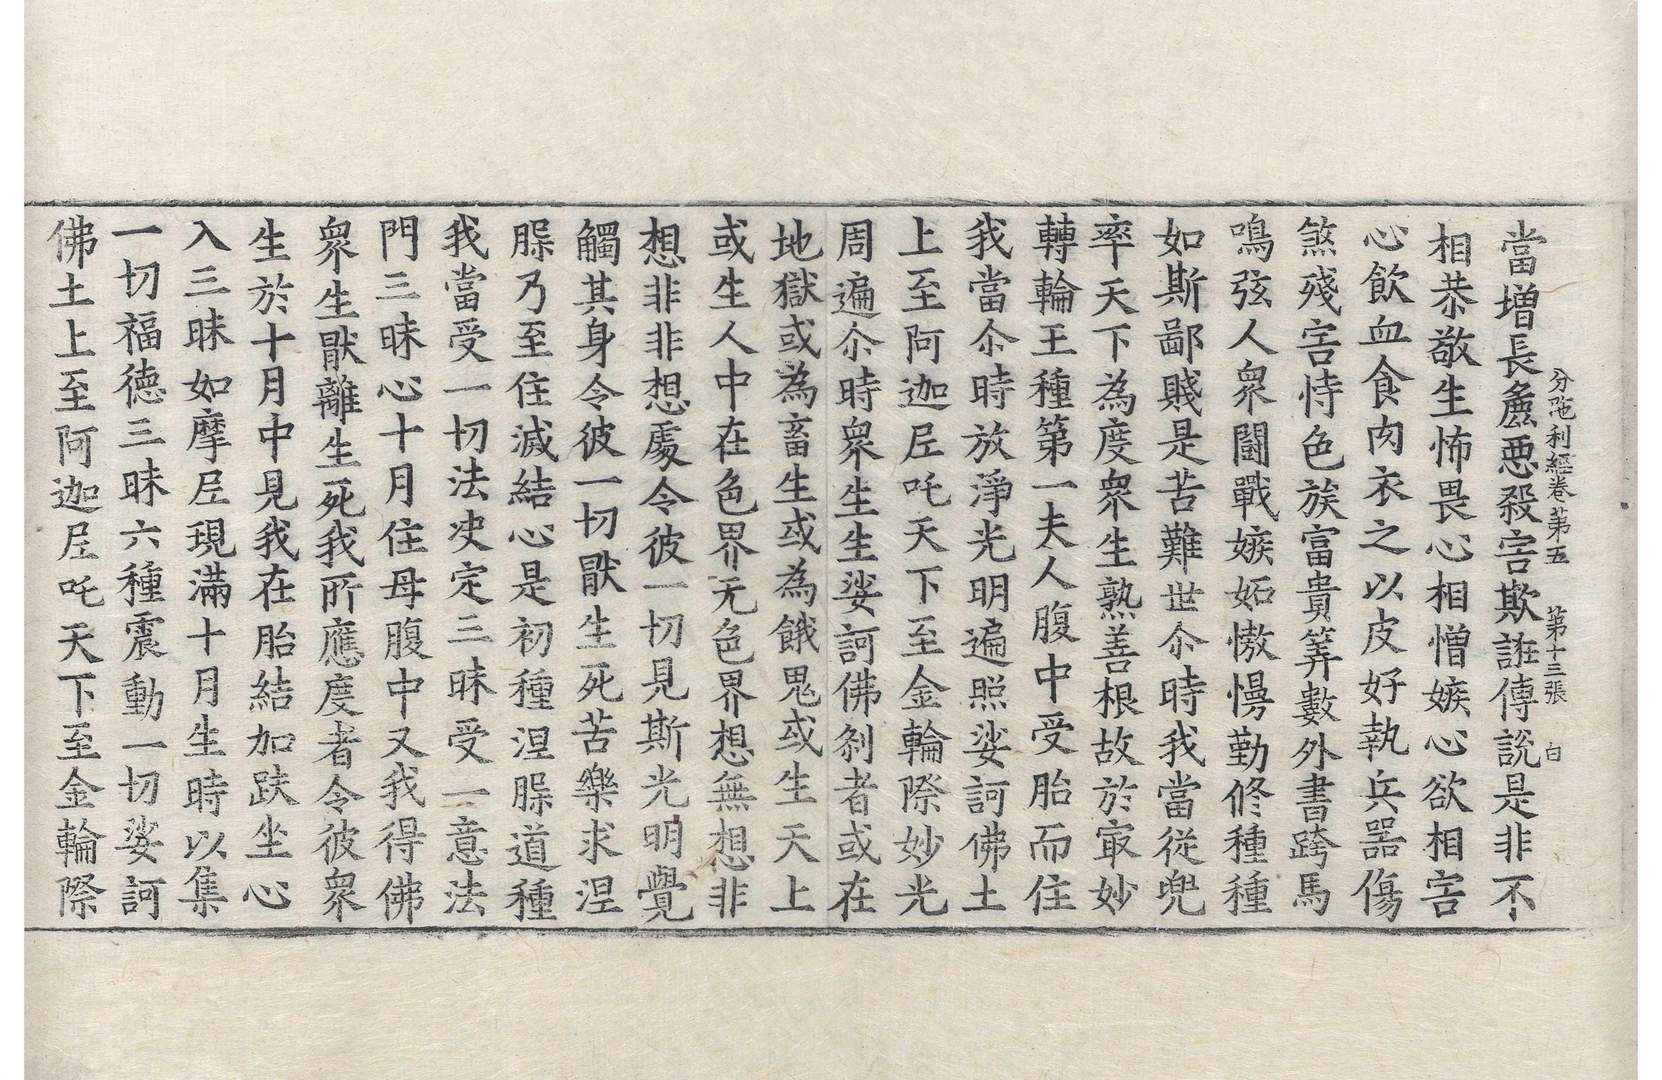 分陁利經卷苐五　苐十三張　白
當增長麁悪殺害欺誑傳說是非不
相恭敬生怖畏心相憎嫉心欲相害
心飲血食肉衣之以皮好執兵器傷
煞殘害恃色族富貴筭數外書跨馬
鳴弦人衆鬪戰嫉妬憿慢勤修種種
如斯鄙賤是苦難世尒時我當從兜
率天下為度衆生熟善根故於㝡妙
轉輪王種第一夫人腹中受胎而住
我當尒時放淨光明遍照娑訶佛土
上至阿迦尼吒天下至金輪際妙光
周遍尒時衆生生娑訶佛剎者或在
地獄或為畜生或為餓鬼或生天上
或生人中在色界无色界想無想非
想非非想處令彼一切見斯光明覺
觸其身令彼一切猒生死苦樂求涅
槃乃至住滅結心是初種涅槃道種
我當受一切法决定三昧受一意法
門三昧心十月住母腹中又我得佛
衆生猒離生死我所應度者令彼衆
生於十月中見我在胎結加趺坐心
入三昧如摩尼現滿十月生時以集
一切福德三昧六種震動一切娑訶
佛土上至阿迦尼吒天下至金輪際